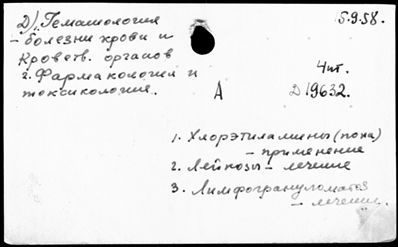 Д) Гематология
5.9.58.
- болезни крови и
Кроветв. органов
2. Фармакология и
токсикология.
4 шт.
А
D 19632.
1. Хлорэтиламины (попа)
- применение
2. Лейкозы - лечение
3. Лимфогрануломатоз
- лечение.